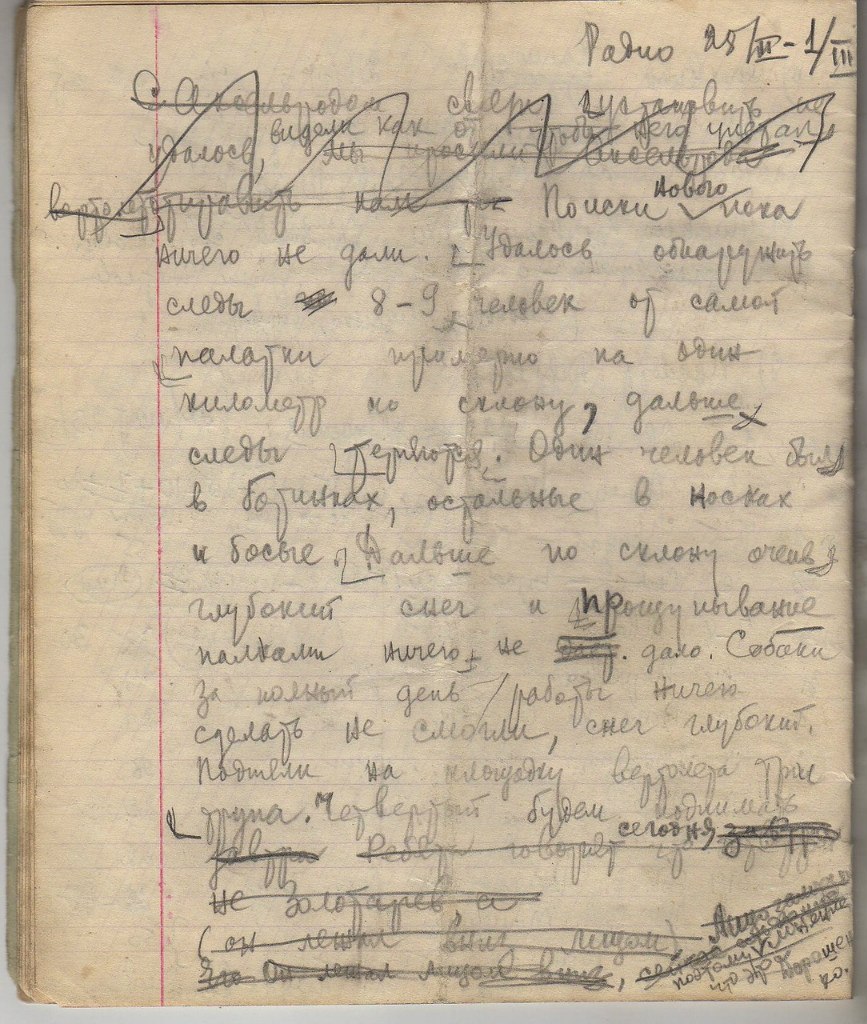 Радио 28/II - 1/III
С Аксельродом связь установить не
видели как от чтобы него умерал
удалось, Мы просили Аксельрода
вертолет отправить нам
Поиски нового пока
ничего не дали. Удалось обнаружить
следы 8-9 человек от самой
палатки примерно на один
километр по склону, дальше
следы теряются. Один человек был
в ботинках, остальные в носках
и босые. Дальше по склону очень
глубокий снег и прощупывание
палками ничего не дало. Собаки
за полный день работы ничего
сделать не смогли, снег глубокий.
Подняли на площадку вертолета три
трупа. Четвертый будем поднимать
сегодня, завтра
завтра Ребята говорят
не Золотарев, а
(он лежал вниз лицом)
Что он лежал лицом вниз,
Лицо
поэтому уменение
что это Дорошен
ко.